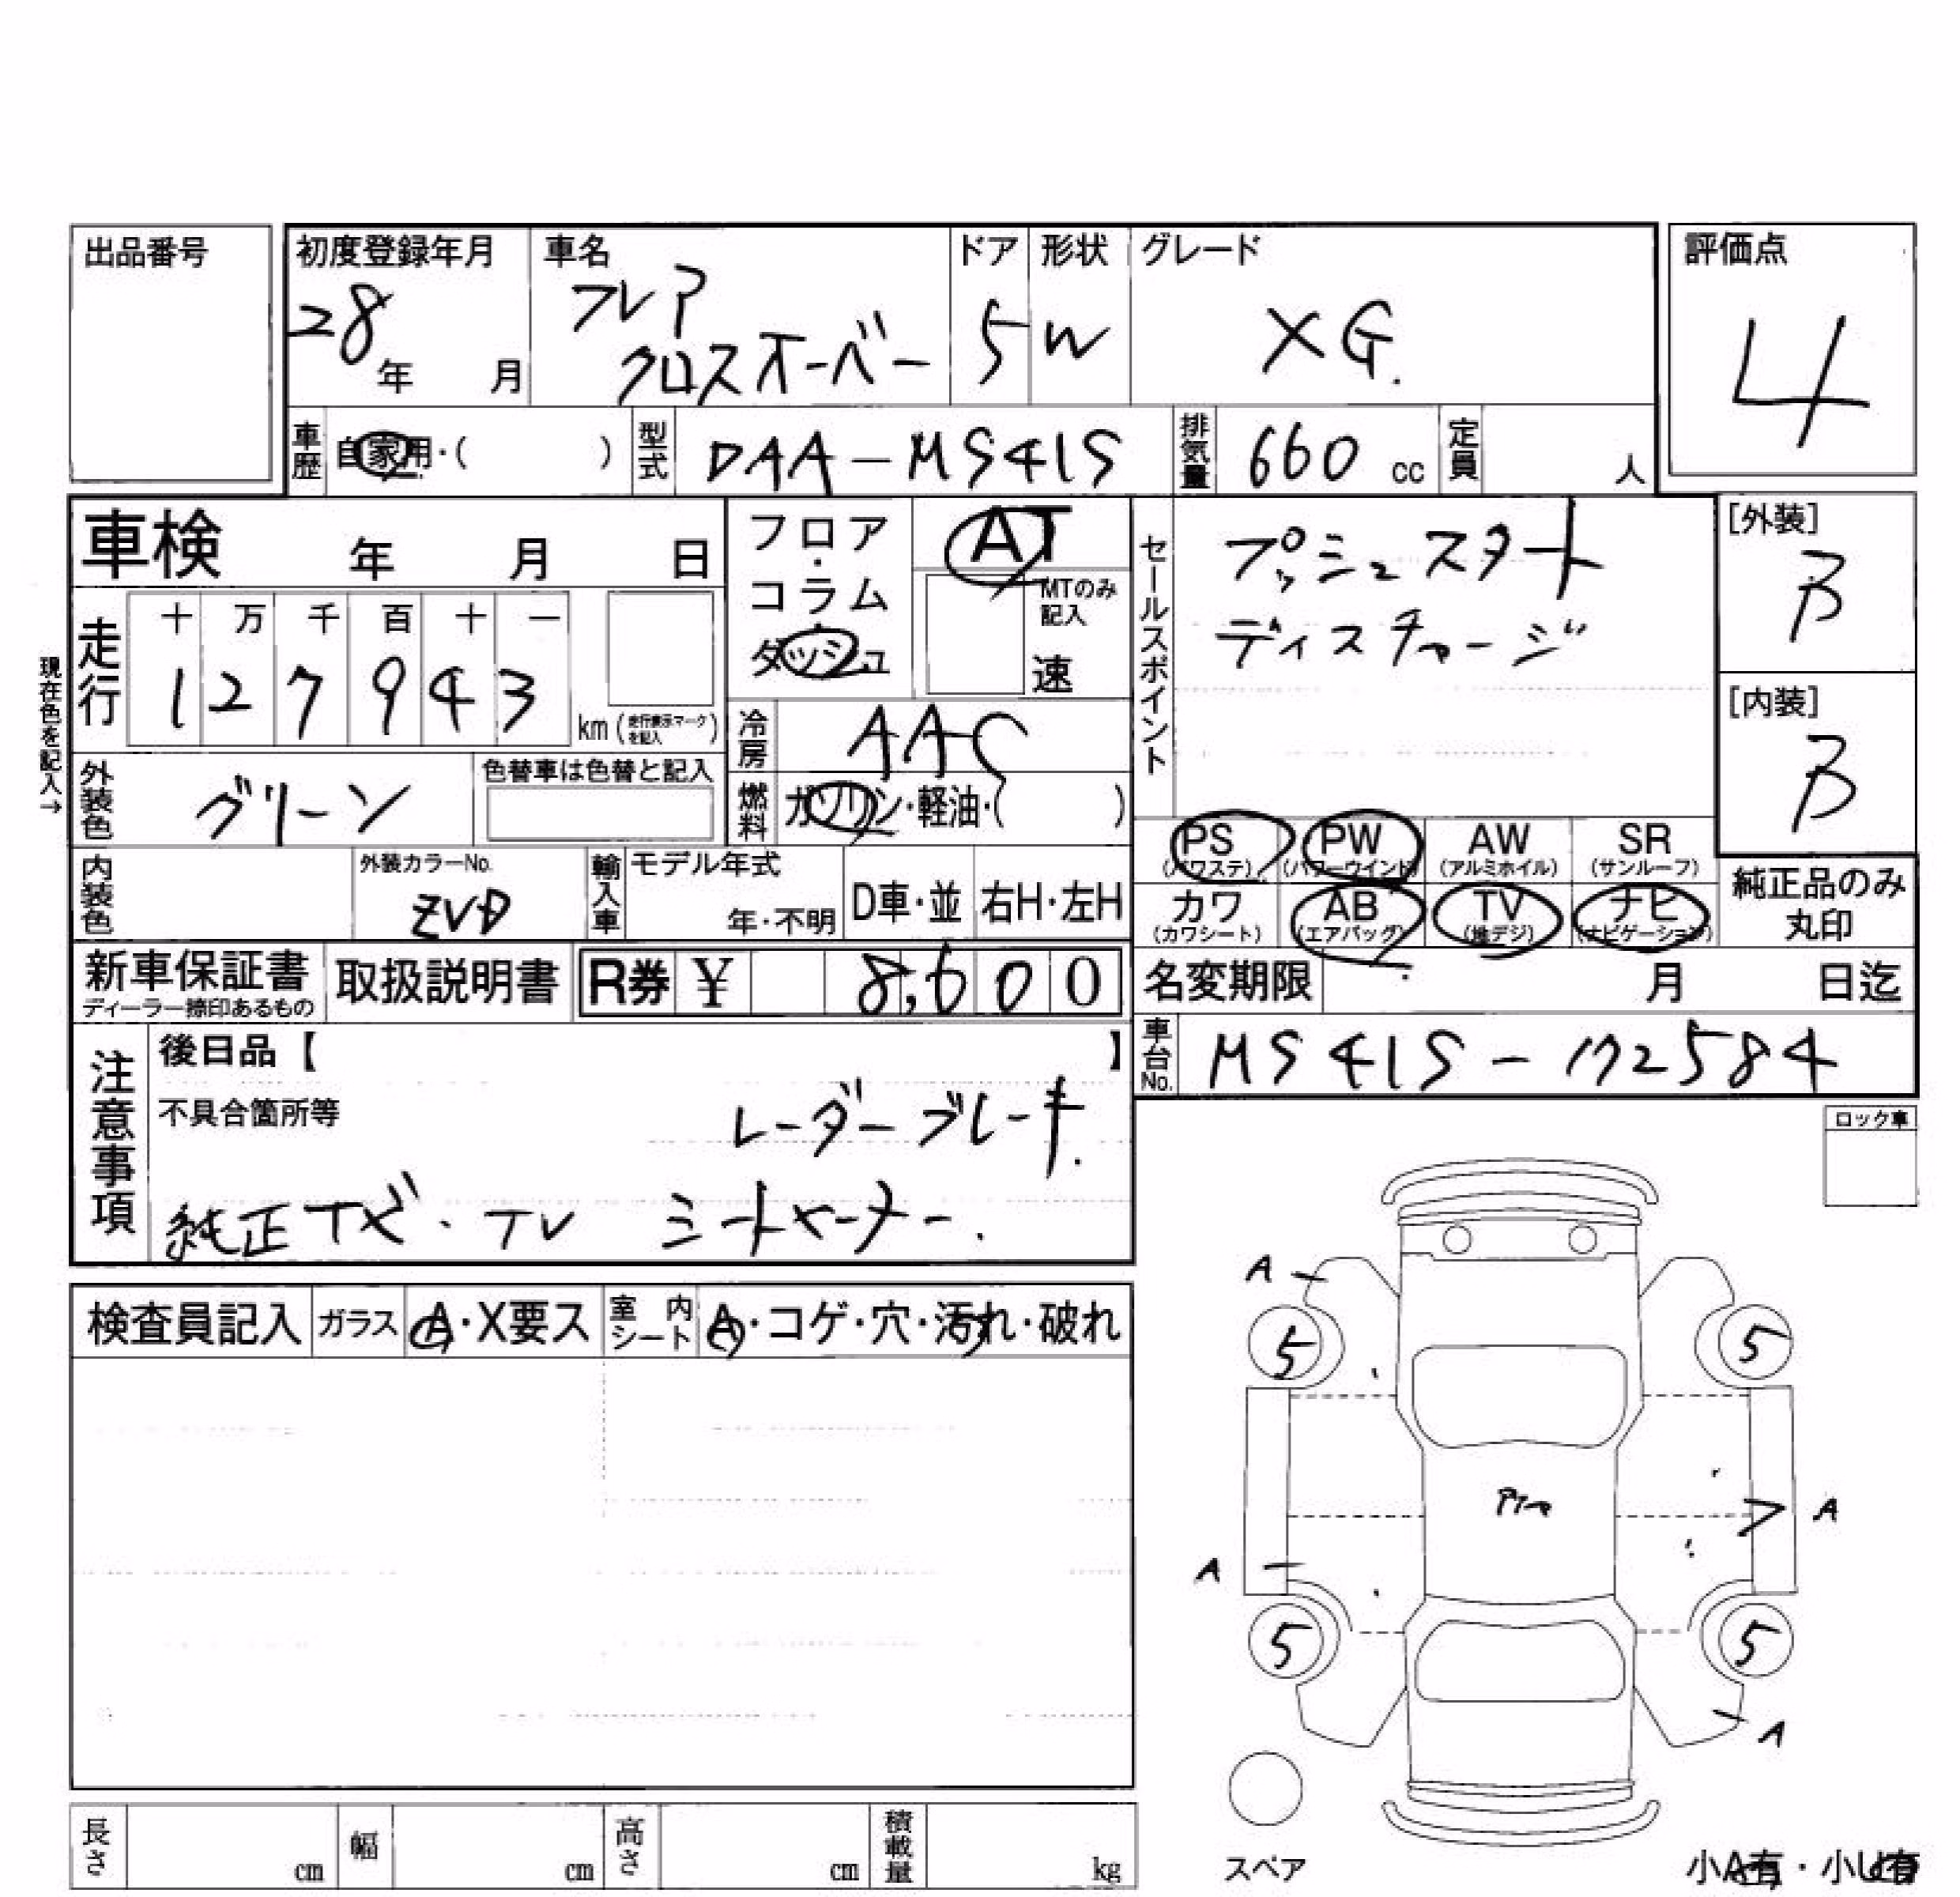 出品番号
初度登録年月 車名 ドア 形状 グレード 評価点
28年 月 フレア クロスオーバー 5 W XG. 4
車歴 自家用・( ) 型式 DAA-MS41S 排気量 660 cc 定員 人
車検 年 月 日
フロア・コラム・ダッシュ AT
MTのみ記入 速
セールスポイント
プッシュスタート
ディスチャージ
[外装] B
[内装] B
現在色を記入→
走行 十 万 千 百 十 一
1 2 7 9 4 3 km (走行表示マークを記入)
冷房 AAC
燃料 ガソリン・軽油・( )
外装色 グリーン 色替車は色替と記入
PS (パワステ) PW (パワーウインド) AW (アルミホイル) SR (サンルーフ)
カワ (カワシート) AB (エアバッグ) TV (地デジ) ナビ (ナビゲーション)
純正品のみ丸印
内装色 外装カラーNo. ZVD 輸入車 モデル年式 年・不明 D車・並 右H・左H
新車保証書 ディーラー捺印あるもの 取扱説明書 R券 ¥ 8,600
名変期限 月 日迄
車台No. MS41S-172584
注意事項 後日品【 】
不具合箇所等 レーダーブレーキ.
純正ナビ・TV シートヒーター.
ロック車
検査員記入 ガラス A・X要ス 室内シート A・コゲ・穴・汚れ・破れ
A
5 5
A
A
5 5
A
スペア
小A有・小U有
長さ cm 幅 cm 高さ cm 積載量 kg